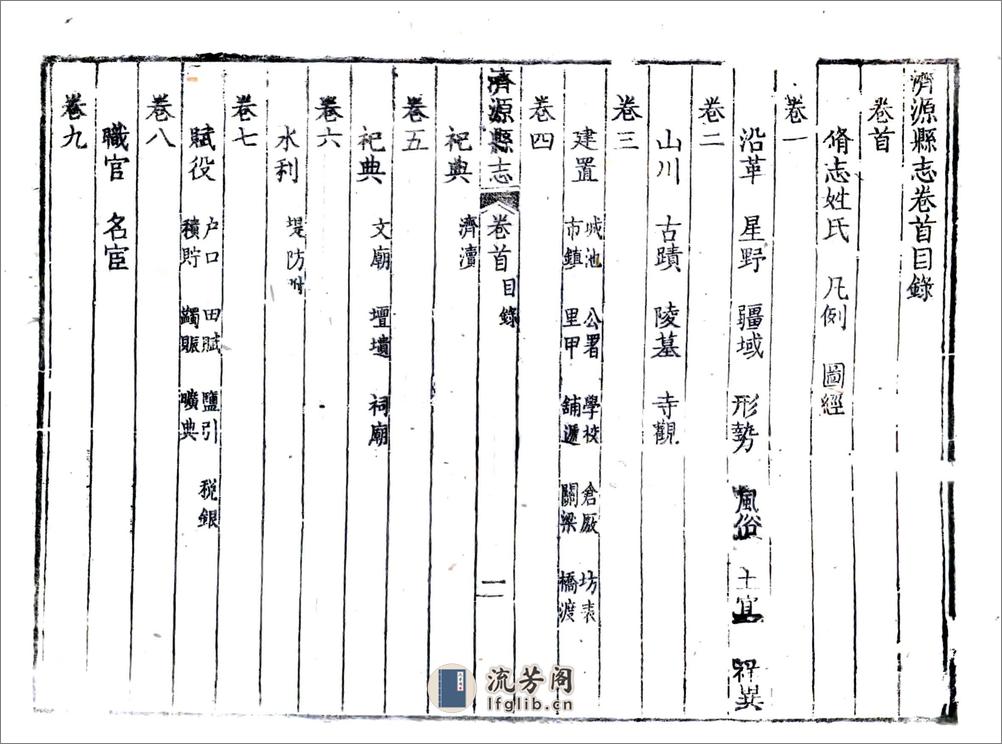 濟源縣志卷首目錄
卷首
脩志姓氏 凡例 圖經
卷一
沿革 星野 疆域 形勢 風俗 土宜 祥異
卷二
山川 古蹟 陵墓 寺觀
卷三
建置 城池 公署 學校 倉厫 坊表
市鎮 里甲 舖遞 關梁 橋渡
卷四
濟源縣志 卷首 目錄 一
祀典 濟瀆
卷五
祀典 文廟 壇壝 祠廟
卷六
水利 堤防附
卷七
賦役 户口 田賦 鹽引 税銀
積貯 蠲賑 曠典
卷八
職官 名宦
卷九
流芳阁
lfglib.cn